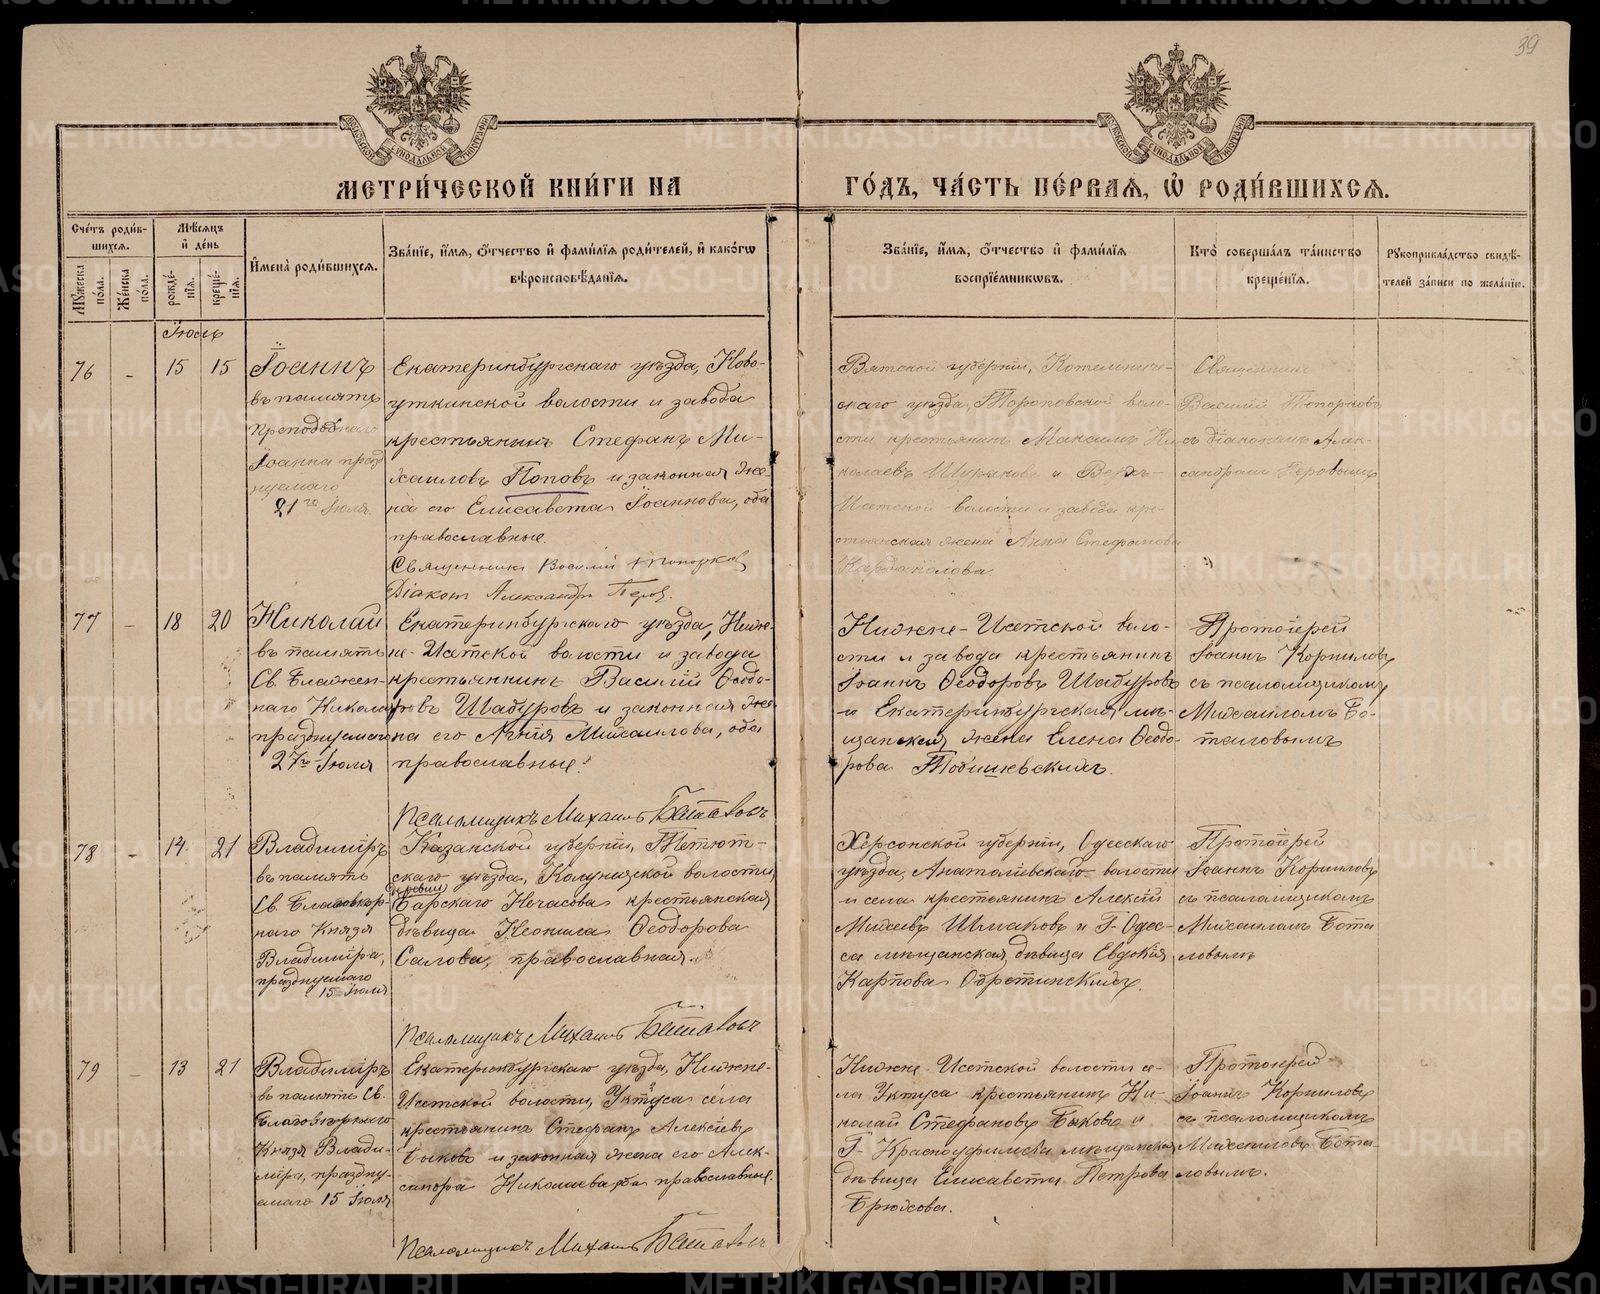 39
МЕТРИ́ЧЕСКОЙ КНИ́ГИ НА
ГО́ДЪ, ЧА́СТЬ ПЕ́РВАЯ, Ѡ҆ РОДИ́ВШИХСѦ.
Сче́тъ роди́в-
шихсѧ.
Мꙋ́жеска по́ла.
Же́нска по́ла.
Мѣ́сяцъ и де́нь
рожде́нїѧ.
креще́нїѧ.
И҆мена̀ роди́вшихсѧ.
Зва́нїе, и҆́мѧ, о҆́тчество и҆ фами́лїѧ роди́телей, и҆ како́гѡ
вѣроисповѣ́данїѧ.
Зва́нїе, и҆́мѧ, о҆́тчество и҆ фами́лїѧ
воспрїе́мниковъ.
Кто̀ соверша́лъ та́инство
креще́нїѧ.
Рꙋкоприкла́дство свидѣ́-
телей за́писи по жела́нїю.
Іюль
76 - 15 15
Іоаннъ
въ память
преподобнаго
Іоанна празд
нуемаго
21го Іюля
Екатеринбургскаго уѣзда, Ново-
уткинской волости и завода
крестьянинъ Стефанъ Ми-
хаиловъ Поповъ и законная же-
на его Елисавета Іоаннова, оба
православные.
Священникъ Василій Топорковъ
Діаконъ Александръ Перов.
Вятской губерніи, Котельниче-
скаго уѣзда, Тороповской воло-
сти крестьянинъ Максимъ Ни-
колаевъ и Верхъ-
Исетской волости и завода кре-
стьянская жена Анна Стефанова
Священникъ
Василій Топорковъ
съ діакономъ Алек-
сандромъ Перовымъ
77 - 18 20
Николай
въ память
Св. Блажен-
наго Николая
празднуемаго
27го Іюля
Екатеринбургскаго уѣзда, Ниж-
не-Исетской волости и завода
крестьянинъ Василій Ѳеодо-
ровъ Шабуровъ и законная же-
на его Агнія Михаилова, оба
православные.
Псаломщикъ Михаилъ Боталовъ
Нижне-Исетской воло-
сти и завода крестьянинъ
Іоаннъ Ѳеодоровъ Шабуровъ
и Екатеринбургская мѣ-
щанская жена Елена Ѳеодо-
рова Тобишевскихъ.
Протоіерей
Іоаннъ Корниловъ
съ псаломщикомъ
Михаиломъ Бо-
таловымъ
78 - 14 21
Владиміръ
въ память
Св. Благовѣр-
наго Князя
Владиміра,
празднуемаго
15 Іюля
Казанской губерніи, Тетюш-
скаго уѣзда, волости,
деревни
Нечасова крестьянская
дѣвица Неонила Ѳеодорова
Салова, православная.
Псаломщикъ Михаилъ Боталовъ
Херсонской губерніи, Одесскаго
уѣзда, Анатоліевской волости
и села крестьянинъ Алексій
Михеевъ Шпаковъ и Г. Одес-
са мѣщанская дѣвица Евдокія
Карпова
Протоіерей
Іоаннъ Корниловъ
съ псаломщикомъ
Михаиломъ Бота
ловымъ
79 - 13 21
Владиміръ
въ память Св.
Благовѣрнаго
Князя Влади-
міра, праздну-
емаго 15 Іюля
Екатеринбургскаго уѣзда, Нижне-
Исетской волости, Уктуса села
крестьянинъ Стефанъ Алексіевъ
Быковъ и законная жена его Алек-
сандра Николаева, оба православные.
Псаломщикъ Михаилъ Боталовъ
Нижне-Исетской волости се-
ла Уктуса крестьянинъ Ни-
колай Стефановъ Быковъ и
Г. Красноуфимска мѣщанская
дѣвица Елисавета Петрова
Брюхова.
Протоіерей
Іоаннъ Корниловъ
съ псаломщикомъ
Михаиломъ Бота-
ловымъ.
METRIKI.GASO-URAL.RU